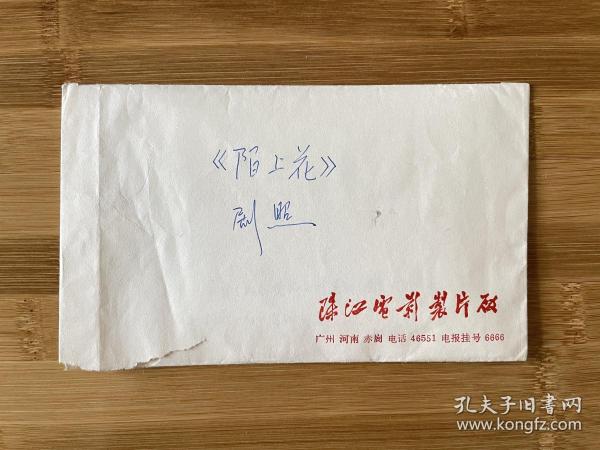 《陌上花》
剧照
珠江電影製片廠
广州 河南 赤岗 电话 46551 电报挂号 6666
孔夫子旧书网
www.kongfz.com